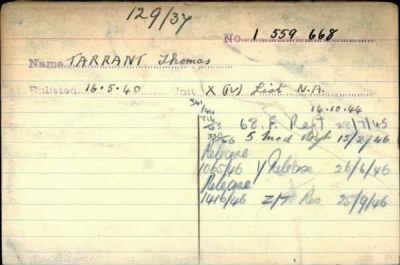 129/37
No. 1 559 668
Name TARRANT Thomas
Enlisted 16.5.40 Unit X (IV) List N.A.
16.10.44
68. F. Regt 28/7/45
5 Med Regt 15/2/46
Release
1065/46 Y Release 26/6/46
Release
1416/46 Z/T Res 25/9/46